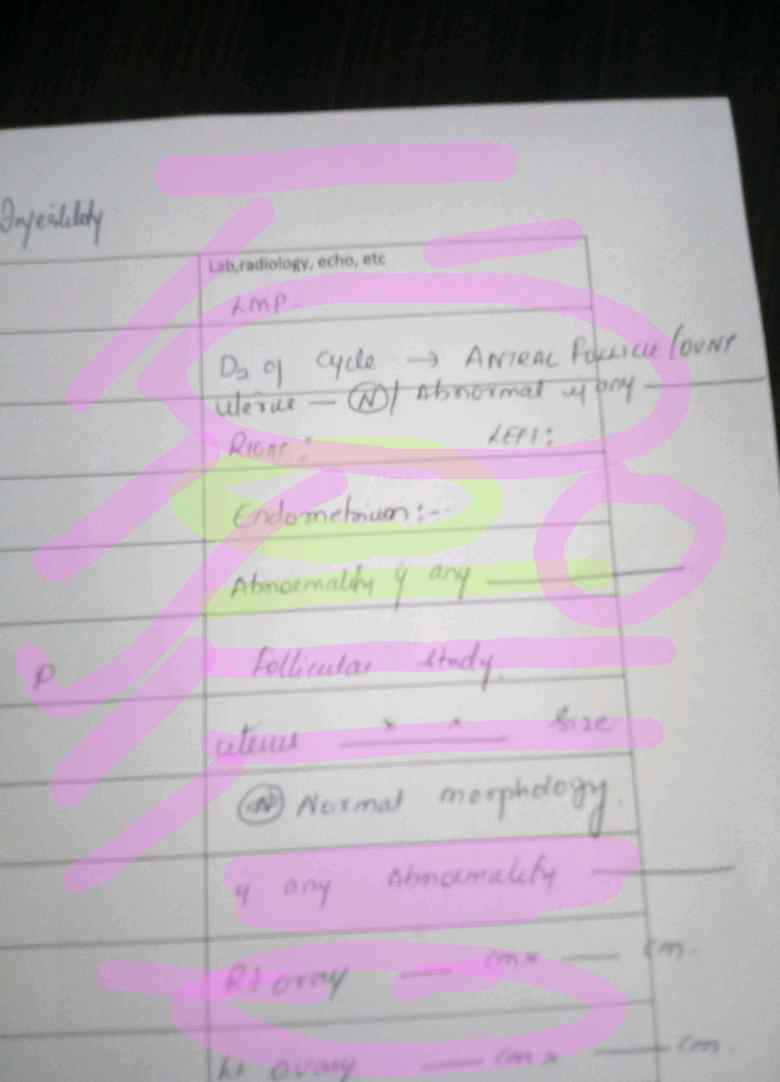 Infertility
Lab,radiology, echo, etc
LMP.
D2 of Cycle → ANTRAL FOLLICLE /
Uterus — (N)/ Abnormal if any —
RIGHT : LEFT :
Endometrium:--
Abnormality if any —
P
Follicular study.
uterus ___x___x___ Size
(N) Normal morphology.
if any Abnormality —
Rt ovary — cm x — cm.
Lt ovary — cm x — cm.